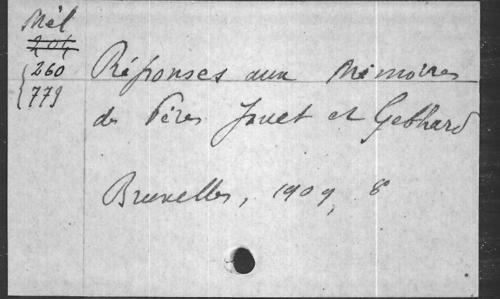 Mél
204
260
779
Réponses aux Mémoires
des Pères Jouet et Gebhard
Bruxelles, 1909, 8°